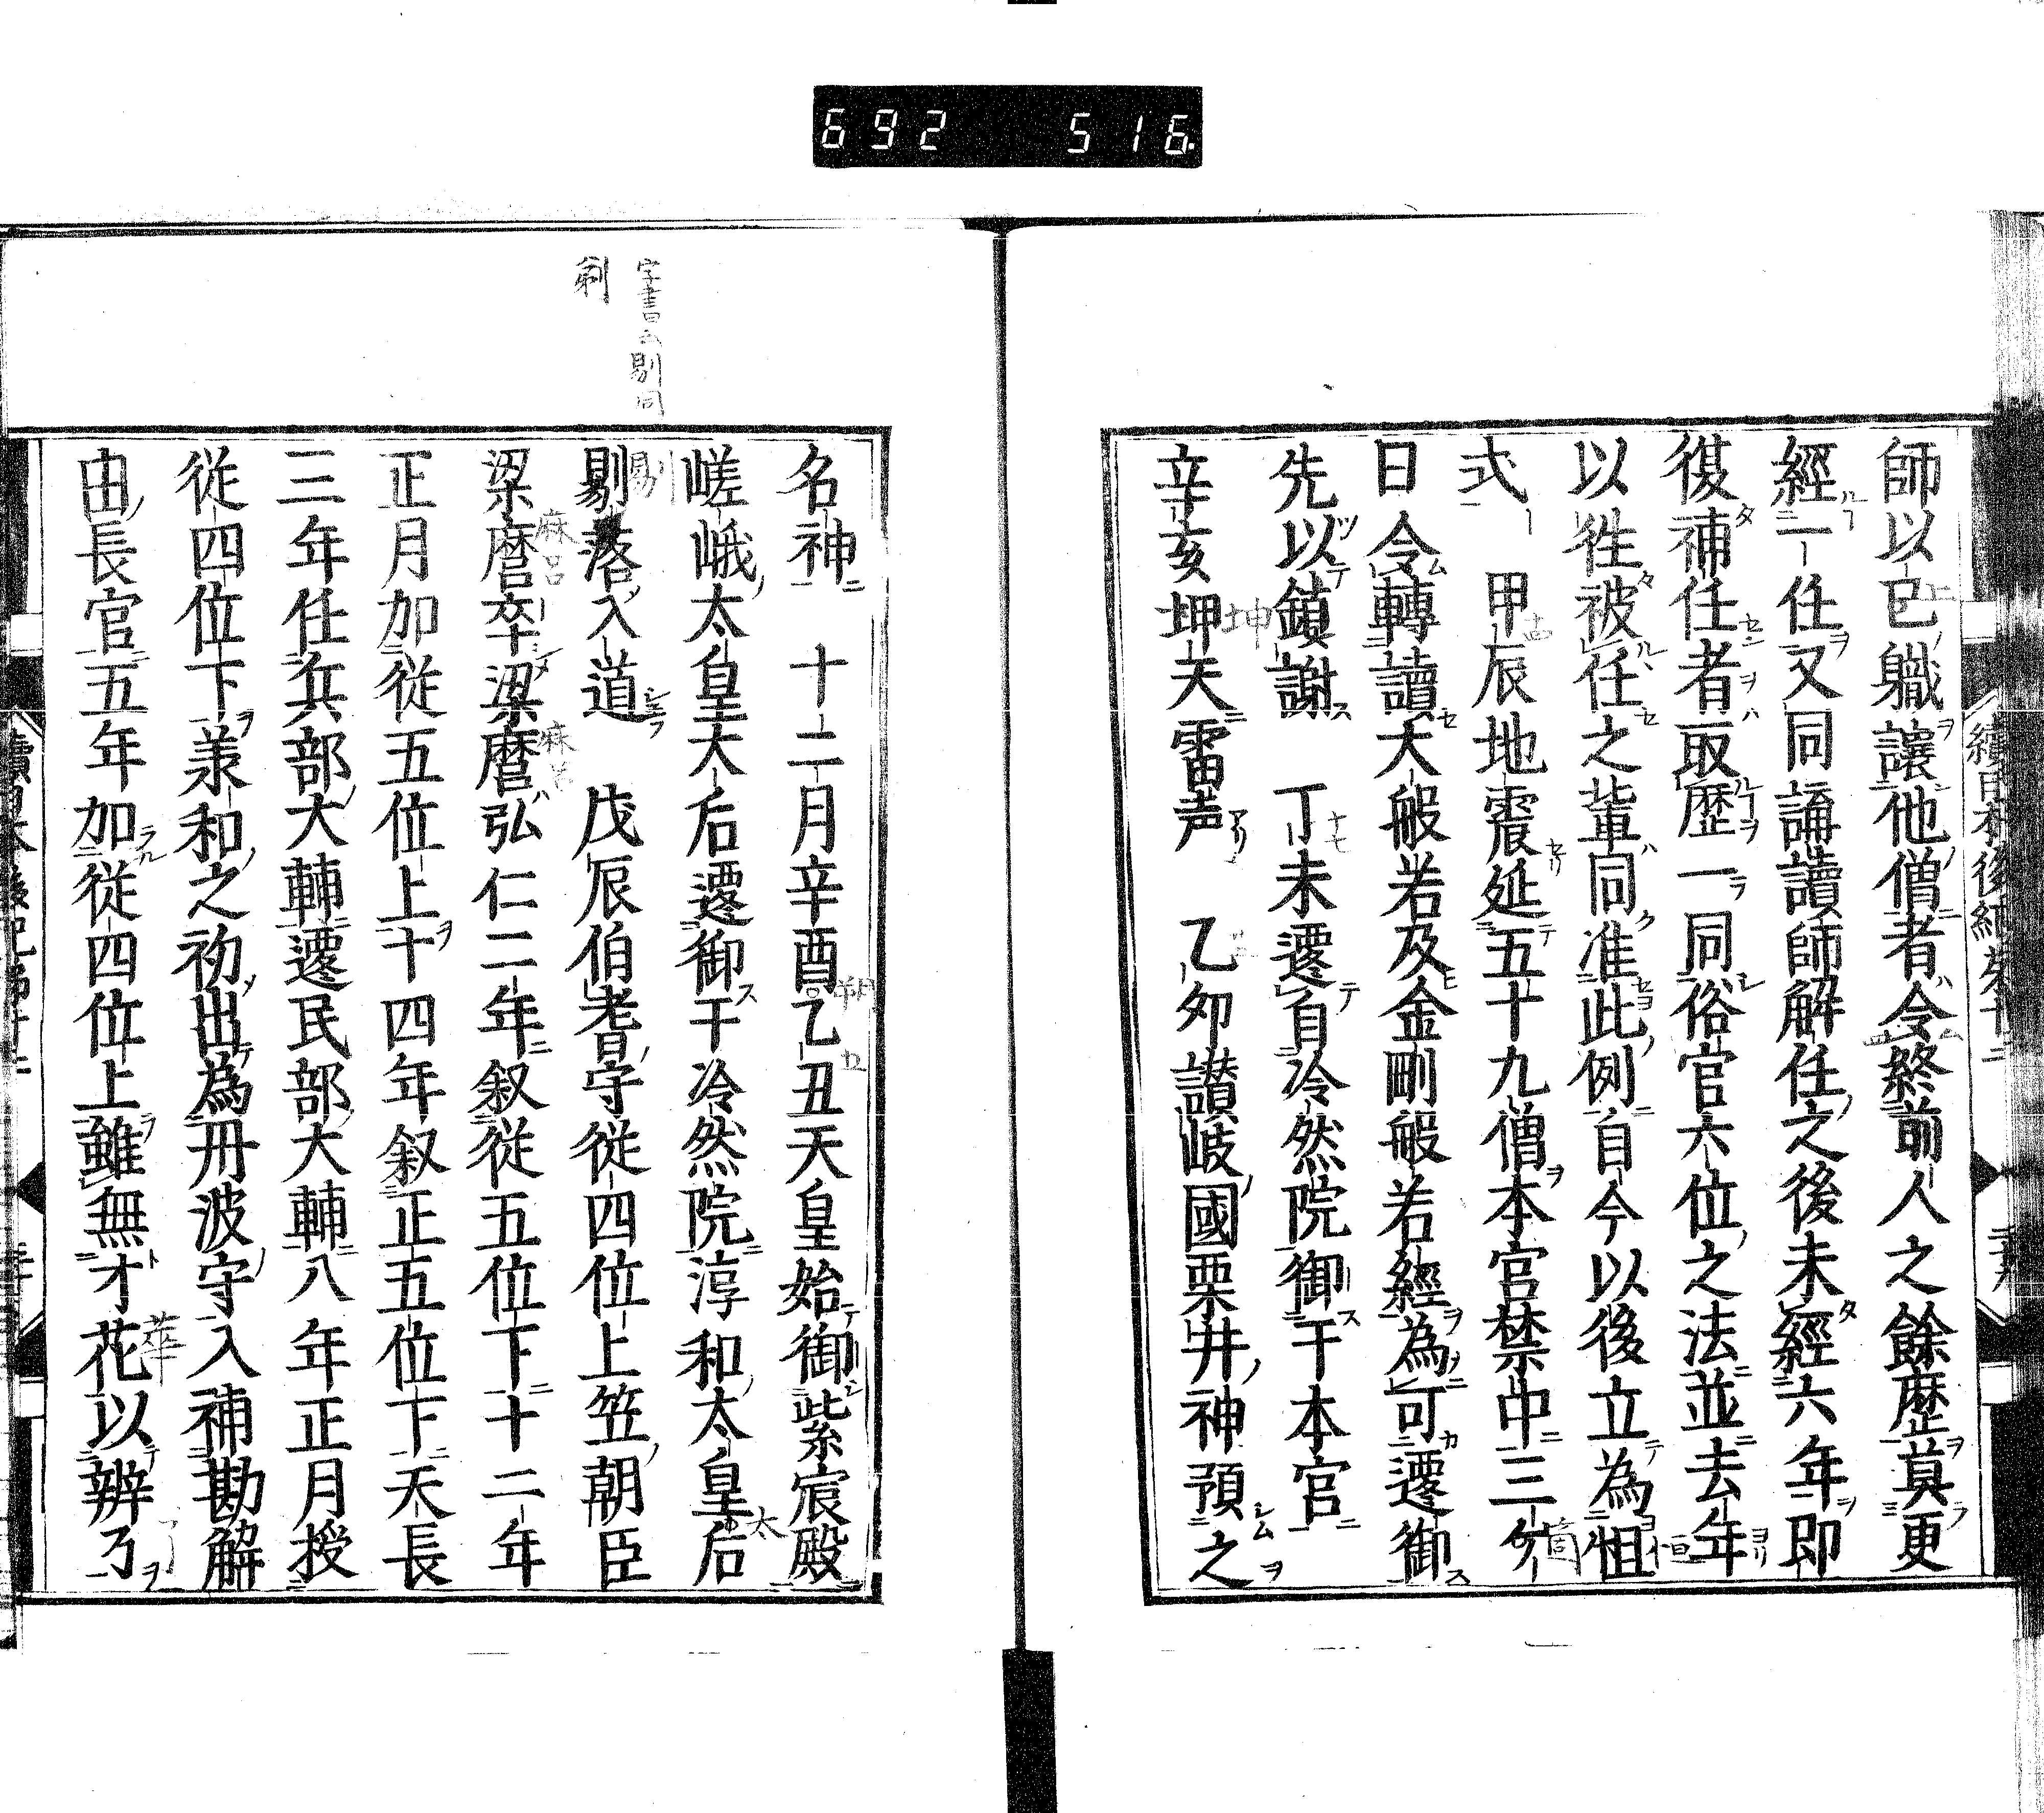 692 516
師以已軄讓他僧者令終前人之餘歷莫更
經一任又同講讀師解任之後未經六年即
復補任者取歷一同俗官六位之法並去年
以徃被任之輩同准此例自今以後立為恒
式 甲辰地震延五十九僧本宮禁中三ケ
日令轉讀大般若及金剛般若經為可遷御
先以鎮謝 丁未遷自冷然院御于本宮
辛亥坤天雷声 乙夘讃岐國栗井神預之
名神 十二月辛酉乙丑天皇始御紫宸殿
嵯峨太皇大后遷御于冷然院淳和太皇后
剔落入道 戊辰伯耆守從四位上笠朝臣
梁麿卒梁麿弘仁二年叙從五位下十二年
正月加從五位上十四年叙正五位下天長
三年任兵部大輔遷民部大輔八年正月授
從四位下羕和之初出為丹波守入補勘解
由長官五年加從四位上雖無才花以辨了
字書云剔同
剃